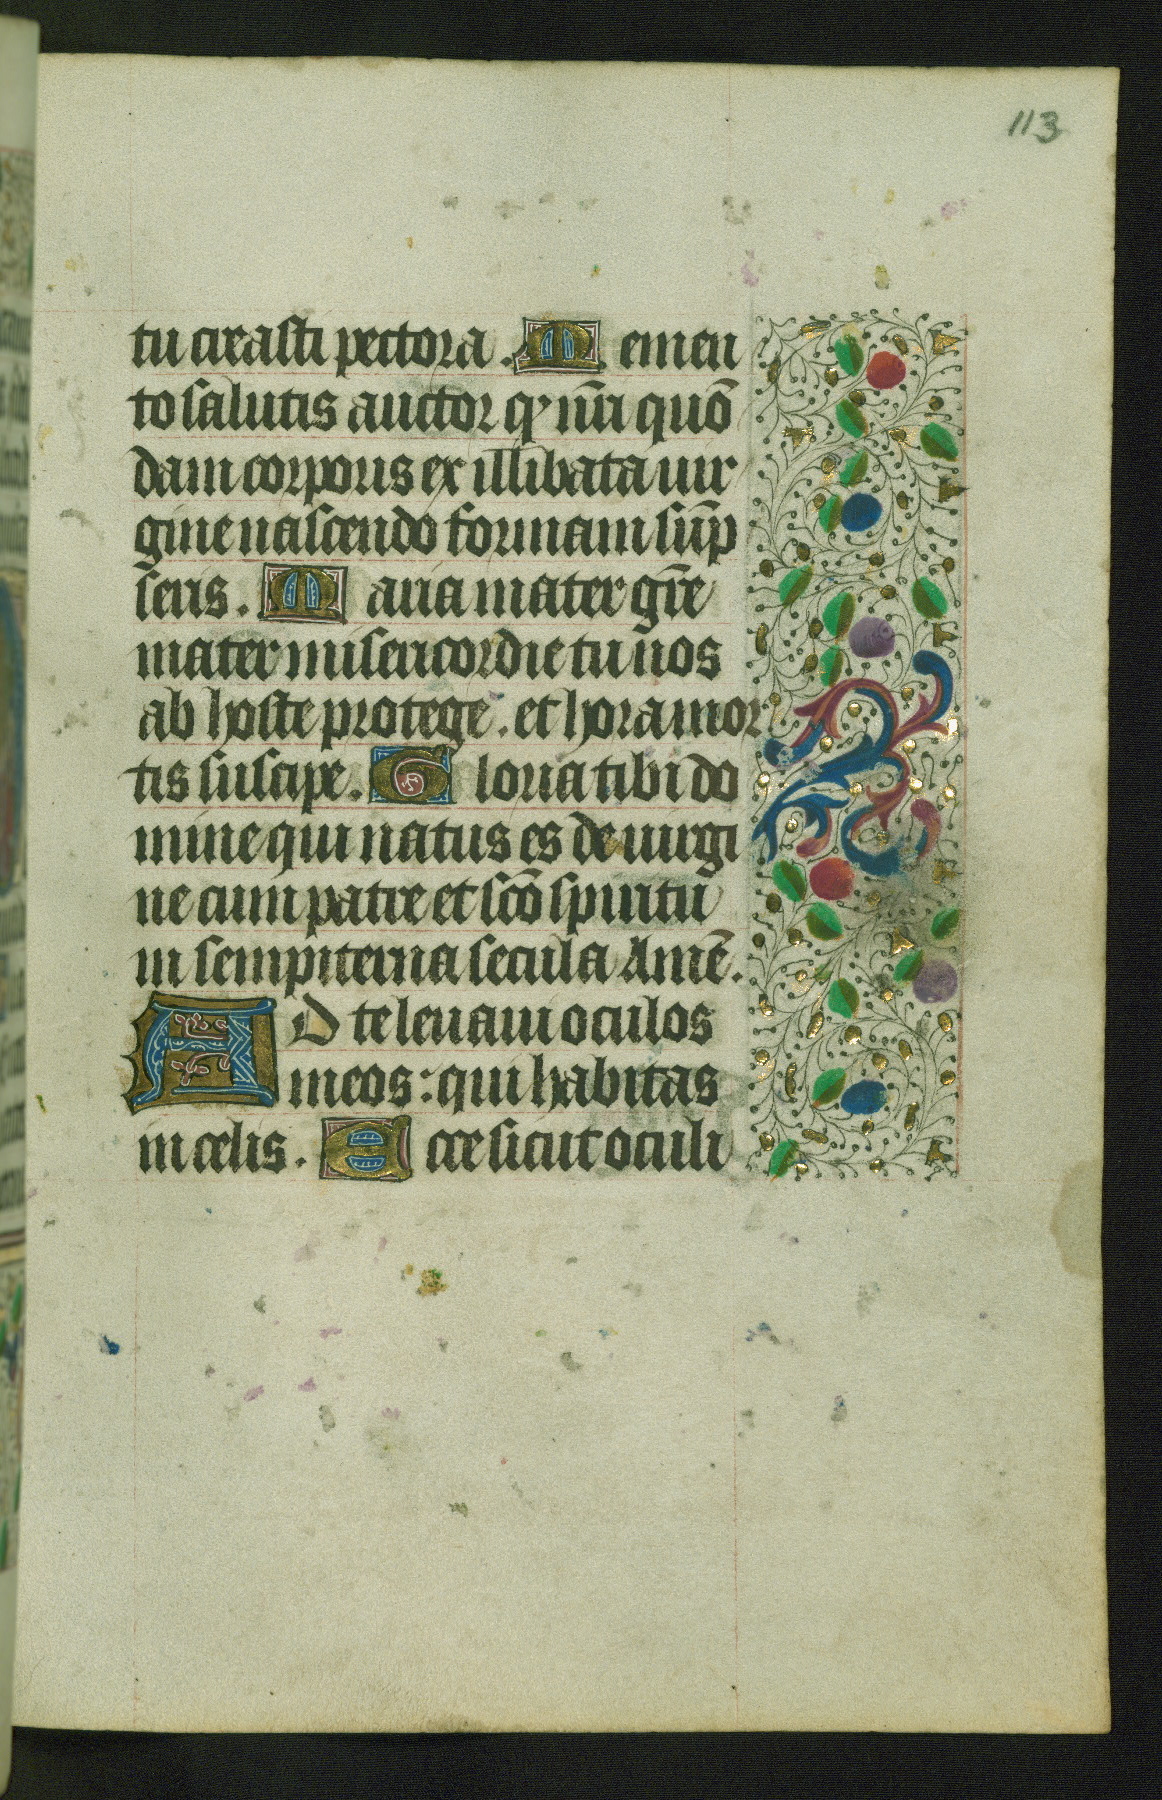 113
tu creasti pectora. Memen
to salutis auctor qͥ nr̄i quō
dam corporis ex illibata uir
gine nascendo formam sūp
seris. Maria mater gr̄e
mater misericordie tu nos
ab hoste protege. et hora mor
tis suscipe. Gloria tibi do
mine qui natus es de uirgi
ne cum patre et sc̄o spiritu
in sempiterna secula Amē.
AD te leuaui oculos
meos: qui habitas
in celis. Ecce sicut oculi